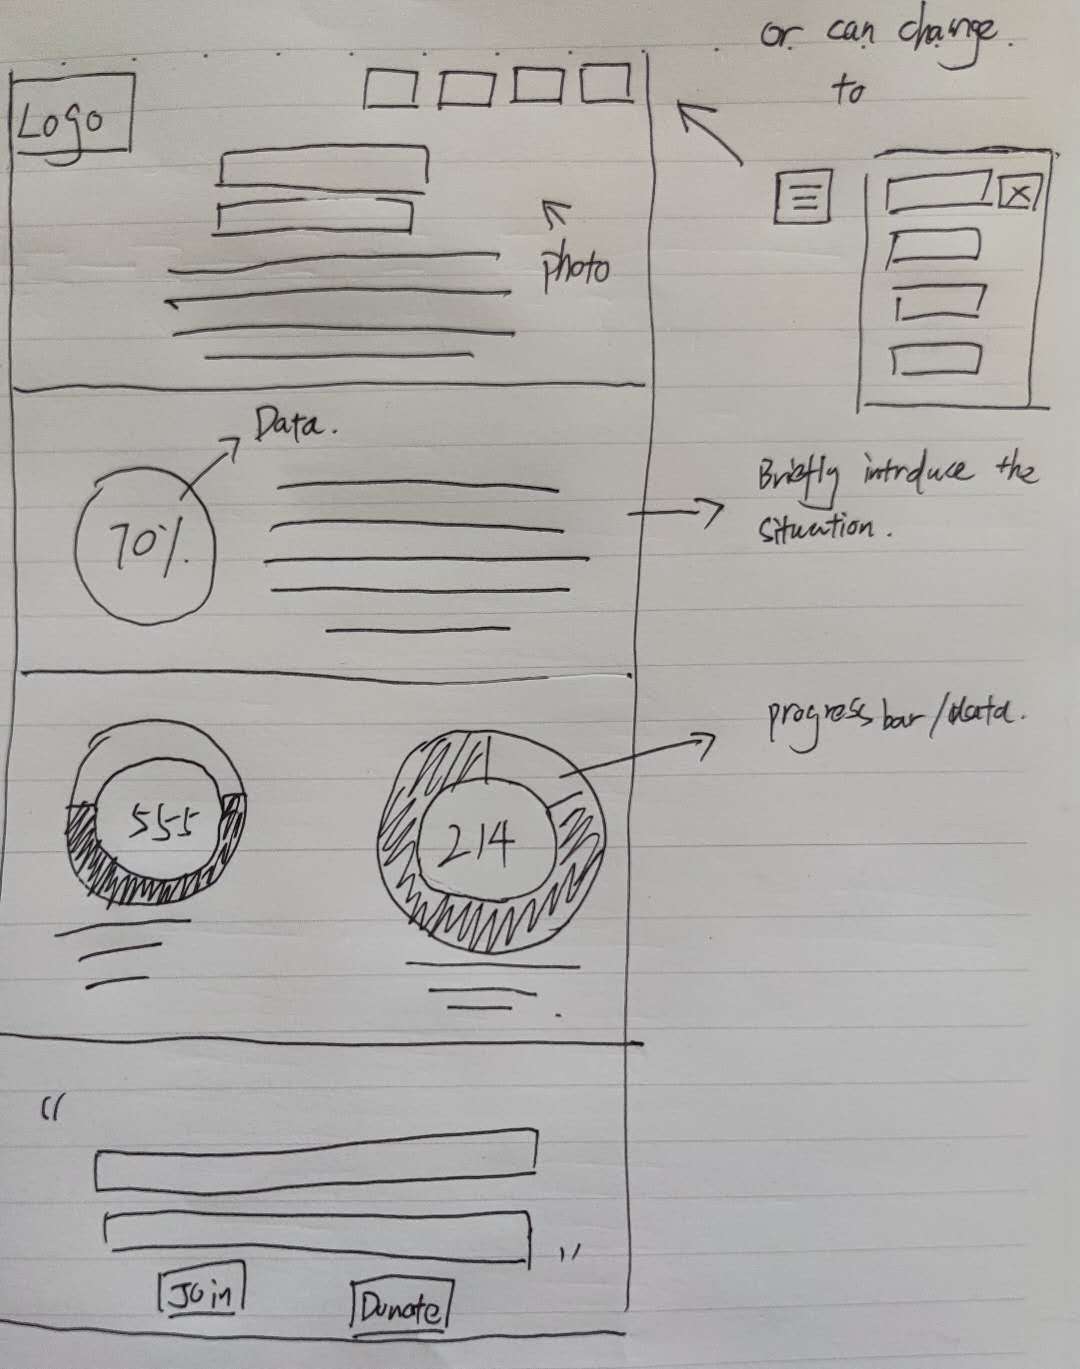 or can change.
to
Logo
photo
Data.
70%
Briefly introduce the
situation.
progress bar/data.
555
214
"
"
Join
Donate